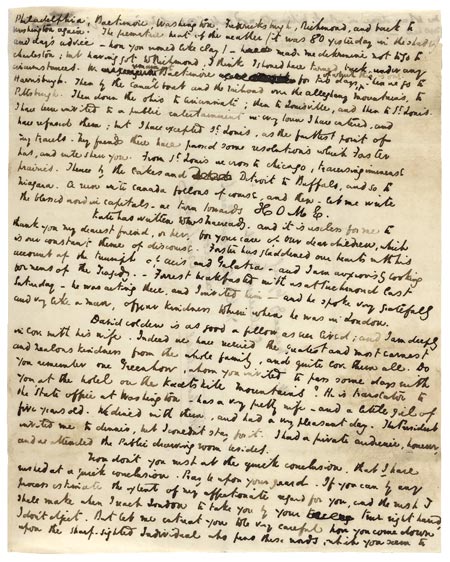 Philadelphia, Baltimore, Washington, Fredericksburgh, Richmond, and back to
Washington again. The premature heat of the weather (it was 80 yesterday in the shade)
and day's advice - how you would like Clay! - have made me determine not to go to
Charleston; but having got to Richmond, I think I should have turned back, under any
circumstances. We Baltimore for two days, of which this is one; then we go to
Harrisburgh. Then by the Canal boat and the railroad over the Alleghany mountains, to
Pittsburgh. Then down the Ohio to Cincinnati; then to Louisville, and then to St. Louis.
I have been invited to a public entertainment in every town I have entered, and
have refused them; but I have excepted St. Louis, as the farthest point of
my travels. My friends there have passed some resolutions which Forster
has, and will shew you. From St. Louis we cross to Chicago, traversing immense
prairies. Thence by the lakes and Detroit to Buffalo, and so to
Niagara. A run into Canada follows of course, and then - let me write
the blessed word in capitals - we turn towards HOME.
Kate has written to Mrs Macready, and it is useless for me to
thank you my dearest friend, or her, for your care of our dear children, which
is our constant theme of discourse. Forster has gladdened our hearts with his
account of the triumph of Acis and Galatea - and I am anxiously looking
for news of the Tragedy. - Forrest breakfasted with us at Richmond last
Saturday - he was acting there, and I invited him - and he spoke very gratefully
and very like a man, of your kindness to him when he was in London.
David Colden is as good a fellow as ever lived; and I am deeply
in love with his wife. Indeed we have received the greatest and most earnest
and zealous kindness from the whole family, and quite love them all. Do
you remember one Greenhow, whom you invited to pass some days with
you at the hotel on the Kaatskill mountains? He is translator to
the State office at Washington - has a very pretty wife - and a little girl of
five years old. We dined with them, and had a very pleasant day. The President
invited me to dinner, but I couldn't stay for it. I had a private audience, however,
and we attended the Public drawing room besides.
Now don't you rush at the quick conclusion that I have
rushed at a quick conclusion. Pray be upon your guard. If you can by any
process estimate the extent of my affectionate regard for you, and the rush I
shall make when I reach London to take you by your true right hand,
I don't object. But let me entreat you to be very careful how you come down
upon the sharp-sighted Individual who pens these words, which you seem to